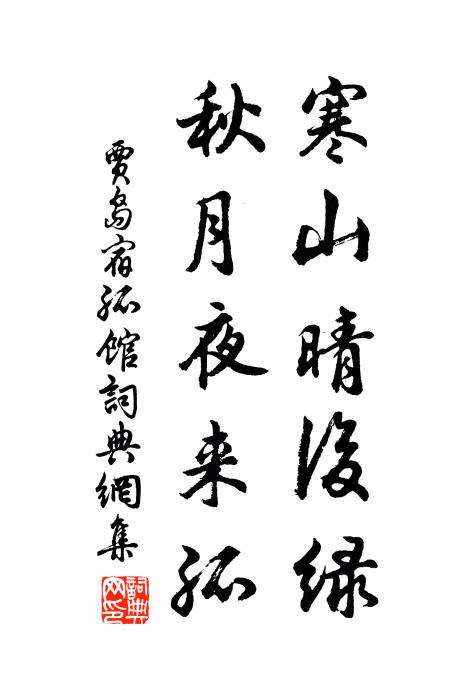 寒山晴後緑
秋月夜来孤
賈島宿孤館詞典網集
詞典网印